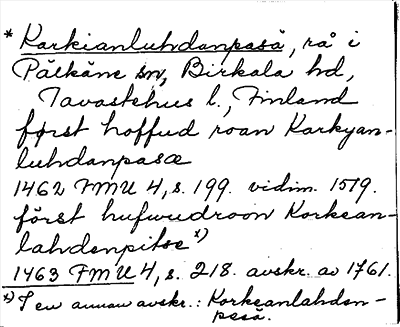 * Karkianluhdanpasä, rå i
Pälkäne sn, Birkala hd,
Tavastehus l., Finland
først hoffud roan Karkyan-
luhdanpasæ
1462 FMU 4, s. 199. vidim. 1519.
först hufwudroon Korkean-
lahdenpitse x)
1463 FMU 4, s. 218. avskr. av 1761.
x) I en annan avskr.: Korkeanlahden-
pesä.